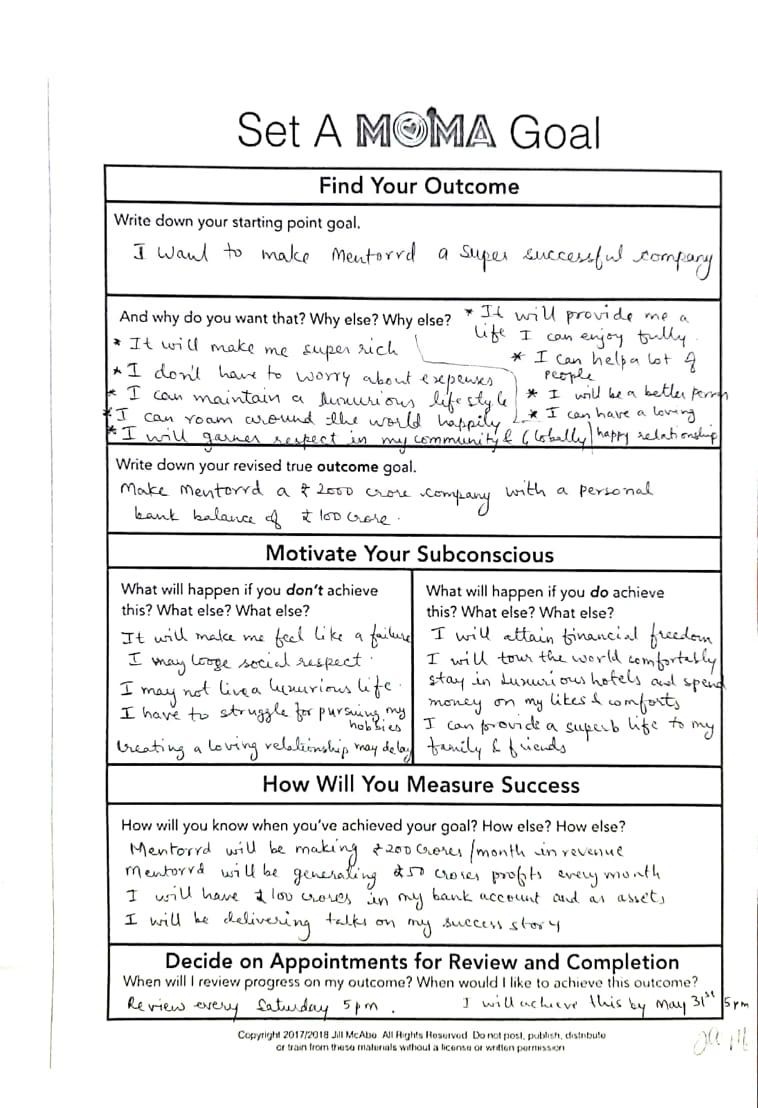 Set A MOMA Goal
Find Your Outcome
Write down your starting point goal.
I want to make Mentorrd a super successful company
And why do you want that? Why else? Why else?
* It will make me super rich
* I don't have to worry about expenses
* I can maintain a luxurious lifestyle
* I can roam around the world happily
* I will garner respect in my community & Globally
* It will provide me a
life I can enjoy fully.
* I can help a lot of
people
* I will be a better person
* I can have a loving
happy relationship
Write down your revised true outcome goal.
Make Mentorrd a ₹ 2000 crore company with a personal
bank balance of ₹ 100 crore.
Motivate Your Subconscious
What will happen if you don't achieve
this? What else? What else?
It will make me feel like a failure
I may loose social respect.
I may not live a luxurious life.
I have to struggle for pursuing my
hobbies
Creating a loving relationship may delay
What will happen if you do achieve
this? What else? What else?
I will attain financial freedom
I will tour the world comfortably
stay in luxurious hotels and spend
money on my likes & comforts
I can provide a superb life to my
family & friends
How Will You Measure Success
How will you know when you've achieved your goal? How else? How else?
Mentorrd will be making ₹200 Crores/month in revenue
Mentorrd will be generating ₹50 crores profits every month
I will have ₹100 crores in my bank account and as assets
I will be delivering talks on my success story
Decide on Appointments for Review and Completion
When will I review progress on my outcome? When would I like to achieve this outcome?
Review every Saturday 5pm.
I will achieve this by May 31st 5pm
Copyright 2017/2018 Jill McAbe. All Rights Reserved. Do not post, publish, distribute
or train from these materials without a license or written permission